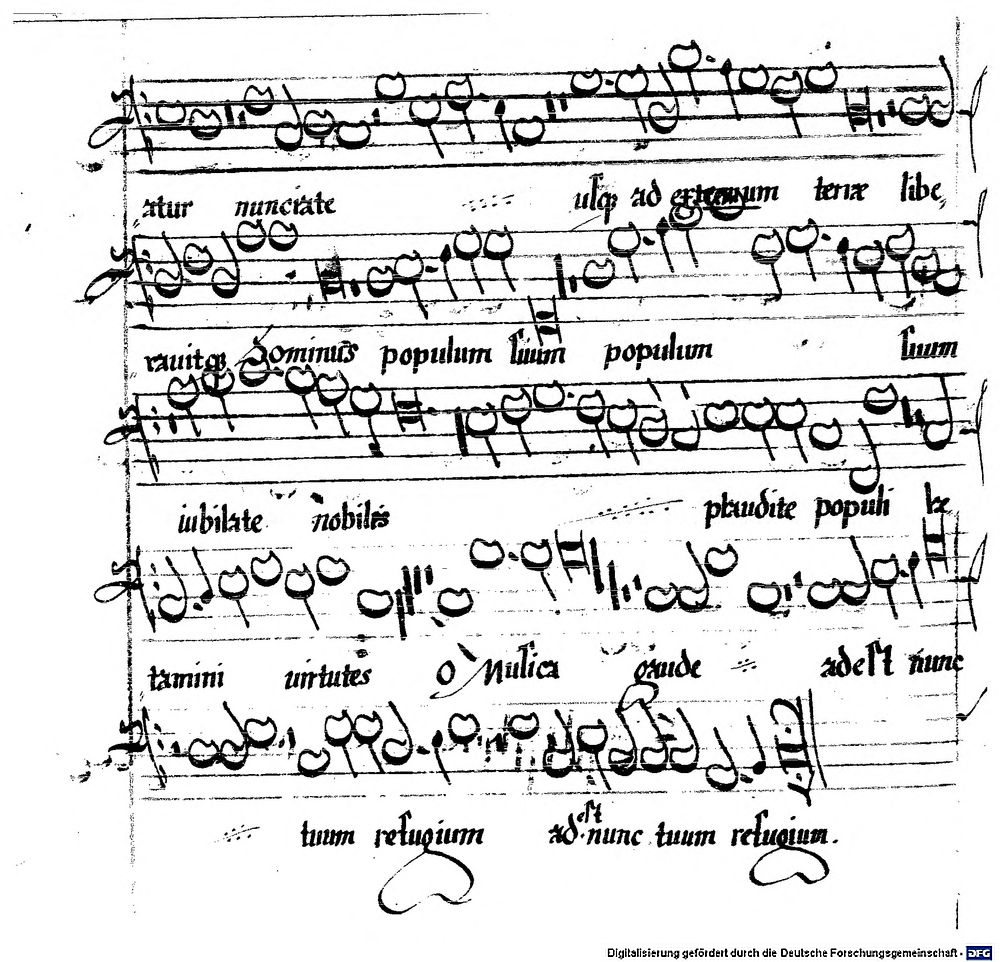 atur nunciate usq ad extremum terræ libe,
rauitq Dominus populum suum populum suum
iubilate nobilis plaudite populi læ
tamini uirtutes O Musica gaude adest nunc
tuum refugium ad est nunc tuum refugium.
Digitalisierung gefördert durch die Deutsche Forschungsgemeinschaft - DFG